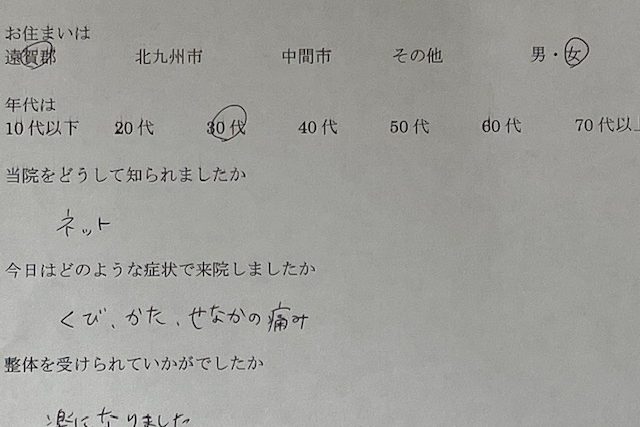 お住まいは
遠賀郡 北九州市 中間市 その他 男・女
年代は
10代以下 20代 30代 40代 50代 60代 70代以上
当院をどうして知られましたか
ネット
今日はどのような症状で来院しましたか
くび、かた、せなかの痛み
整体を受けられていかがでしたか
楽になりました